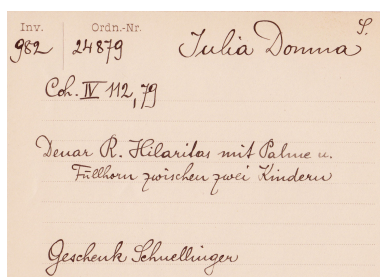 Inv. Ordn.-Nr. S.
982 24879 Julia Domna
Coh. IV 112, 79
Denar R. Hilaritas mit Palme u.
Füllhorn zwischen zwei Kindern
Geschenk Schnellinger